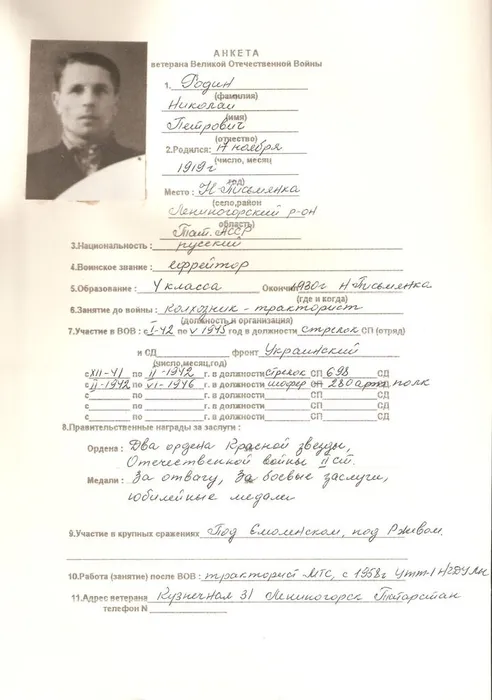 АНКЕТА
ветерана Великой Отечественной Войны
1. Родин
(фамилия)
Николай
(имя)
Петрович
(отчество)
2.Родился: 17 ноября
(число, месяц
1919г
год)
Место : Н-Письмянка
(село,район
Лениногорский р-он
область)
Тат. АССР
3.Национальность : русский
4.Воинское звание : ефрейтор
5.Образование : 4 класса Окончил 1930г Н Письмянка
(где и когда)
6.Занятие до войны : колхозник - тракторист
(должность и организация)
7.Участие в ВОВ : с I-42 по V 1945 год в должности стрелок СП (отряд)
и СД фронт Украинский
(число,месяц,год)
с XII-41 по II-1942 г. в должности стрелок СП 698 СД
с II-1942 по VI-1946 г. в должности шофер СП 280 арт. полк
с по г. в должности СП СД
с по г. в должности СП СД
8.Правительственные награды за заслуги :
Ордена : Два ордена Красной звезды,
Отечественной войны II ст.
Медали : За отвагу, За боевые заслуги,
юбилейные медали
9.Участие в крупных сражениях Под Смоленском, под Ржевом.
10.Работа (занятие) после ВОВ : тракторист МТС, с 1958г УТТ-1 НГДУ ЛН
11.Адрес ветерана Кузнечная 31 Лениногорск Татарстан
телефон N